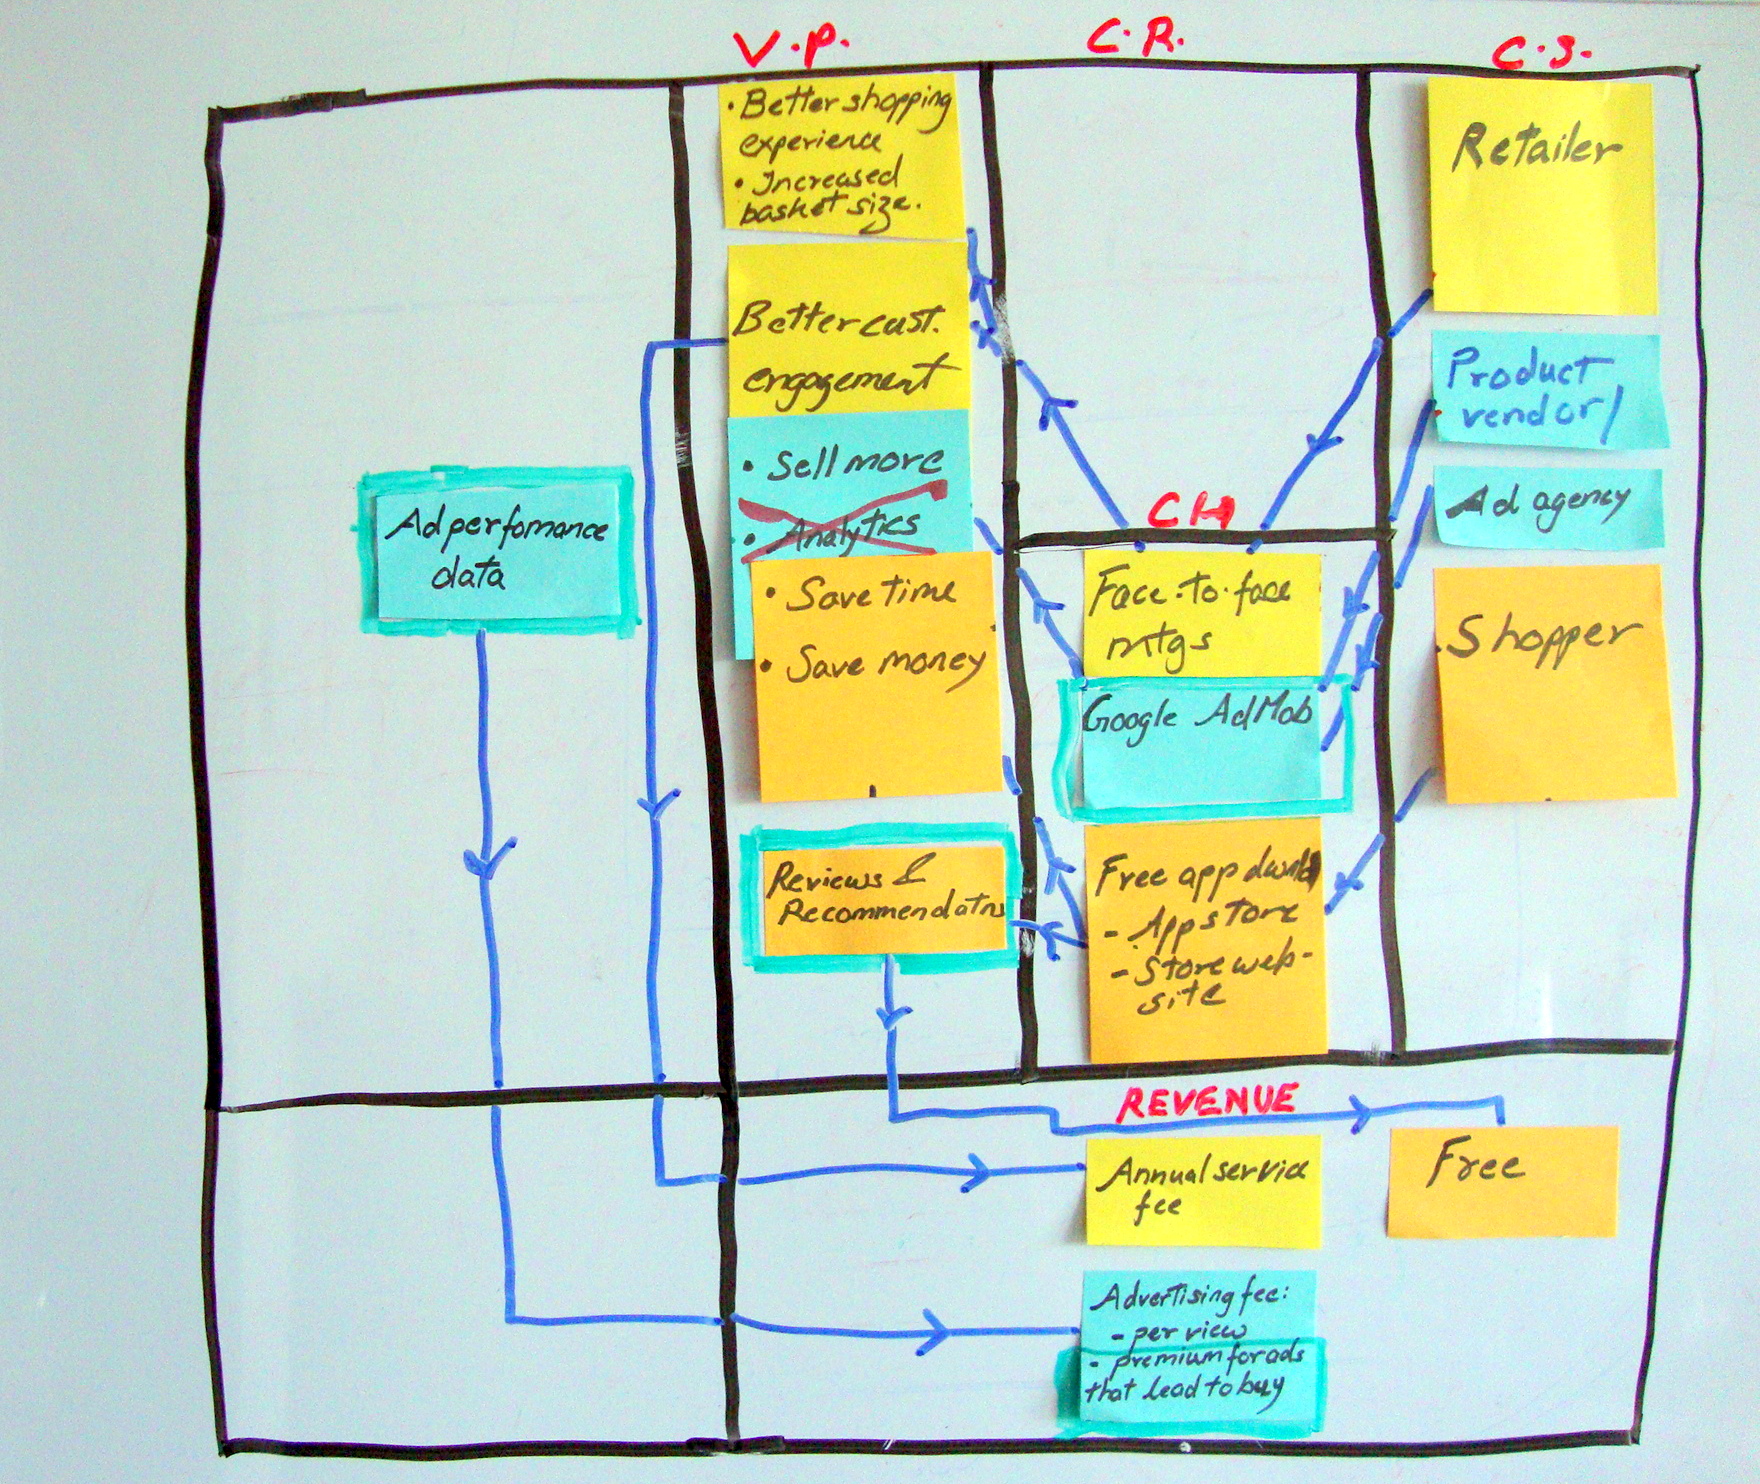 V.P.
C.R.
C.S.
• Better shopping
experience
• Increased
basket size.
Better cust.
engagement
• Sell more
• Analytics
• Save time
• Save money
Reviews &
Recommendatns
Ad perfomance
data
CH
Face-to-face
mtgs
Google AdMob
Free app dwnld
- App store
- Store web-
site
Retailer
Product
vendor/
Ad agency
Shopper
REVENUE
Annual service
fee
Free
Advertising fee:
- per view
- premium for ads
that lead to buy